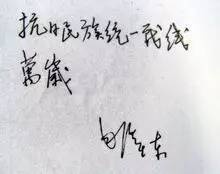 抗日民族统一战线
萬歲
毛泽东